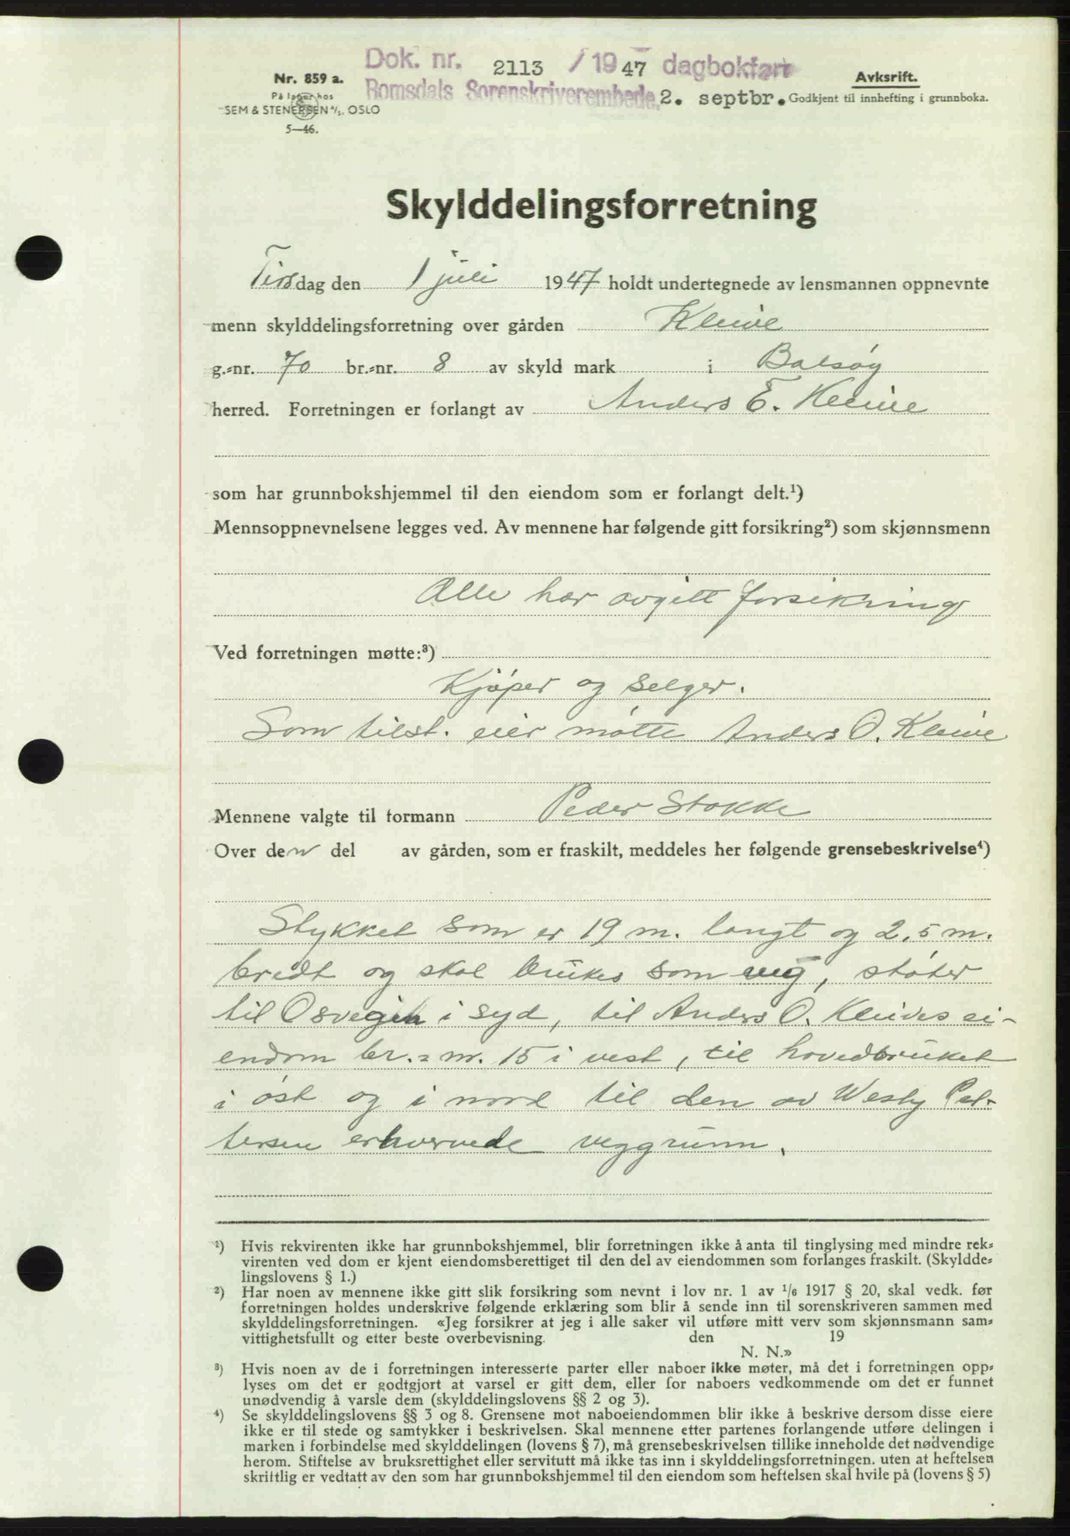 Dok. nr. 2113 / 1947 dagbokført
Romsdals Sorenskriverembede, 2. septbr.
Nr. 859 a.
På lager hos
SEM & STENERSEN A/S, OSLO
5—46.
Avskrift.
Godkjent til innhefting i grunnboka.
Skylddelingsforretning
Tirsdag den 1 juli 1947 holdt undertegnede av lensmannen oppnevnte
menn skylddelingsforretning over gården Kleive
g.-nr. 70 br.-nr. 8 av skyld mark i Bolsøy
herred. Forretningen er forlangt av Anders E. Kleive
som har grunnbokshjemmel til den eiendom som er forlangt delt.¹)
Mennsoppnevnelsene legges ved. Av mennene har følgende gitt forsikring²) som skjønnsmenn
Alle har avgitt forsikring
Ved forretningen møtte:³)
Kjøper og selger.
Som tilst. eier møtte Anders O. Kleive
Mennene valgte til formann Peder Stokke
Over den del av gården, som er fraskilt, meddeles her følgende grensebeskrivelse⁴)
Stykket som er 19 m. langt og 2,5 m.
bredt og skal brukes som veg, støter
til Osvegen i syd, til Anders O. Kleives ei-
endom br.-nr. 15 i vest, til hovedbruket
i øst og i nord til den av Wesly Pet-
tersen erhvervede veggrunn.
¹) Hvis rekvirenten ikke har grunnbokshjemmel, blir forretningen ikke å anta til tinglysing med mindre rek-
virenten ved dom er kjent eiendomsberettiget til den del av eiendommen som forlanges fraskilt. (Skyldde-
lingslovens § 1.)
²) Har noen av mennene ikke gitt slik forsikring som nevnt i lov nr. 1 av 1/6 1917 § 20, skal vedk. før
forretningen holdes underskrive følgende erklæring som blir å sende inn til sorenskriveren sammen med
skylddelingsforretningen. «Jeg forsikrer at jeg i alle saker vil utføre mitt verv som skjønnsmann sam-
vittighetsfullt og etter beste overbevisning. den 19
N. N.»
³) Hvis noen av de i forretningen interesserte parter eller naboer ikke møter, må det i forretningen opp-
lyses om det er godtgjort at varsel er gitt dem, eller for naboers vedkommende om det er funnet
unødvendig å varsle dem (skylddelingslovens §§ 2 og 3).
⁴) Se skylddelingslovens §§ 3 og 8. Grensene mot naboeiendommen blir ikke å beskrive dersom disse eiere
ikke er til stede og samtykker i beskrivelsen. Skal mennene etter partenes forlangende utføre delingen i
marken i forbindelse med skylddelingen (lovens § 7), må grensebeskrivelsen tillike inneholde det nødvendige
herom. Stiftelse av bruksrettighet eller servitutt må ikke tas inn i skylddelingsforretningen. uten at heftelsen
skriftlig er vedtatt av den som har grunnbokshjemmel til den eiendom som heftelsen skal hvile på (lovens § 5)